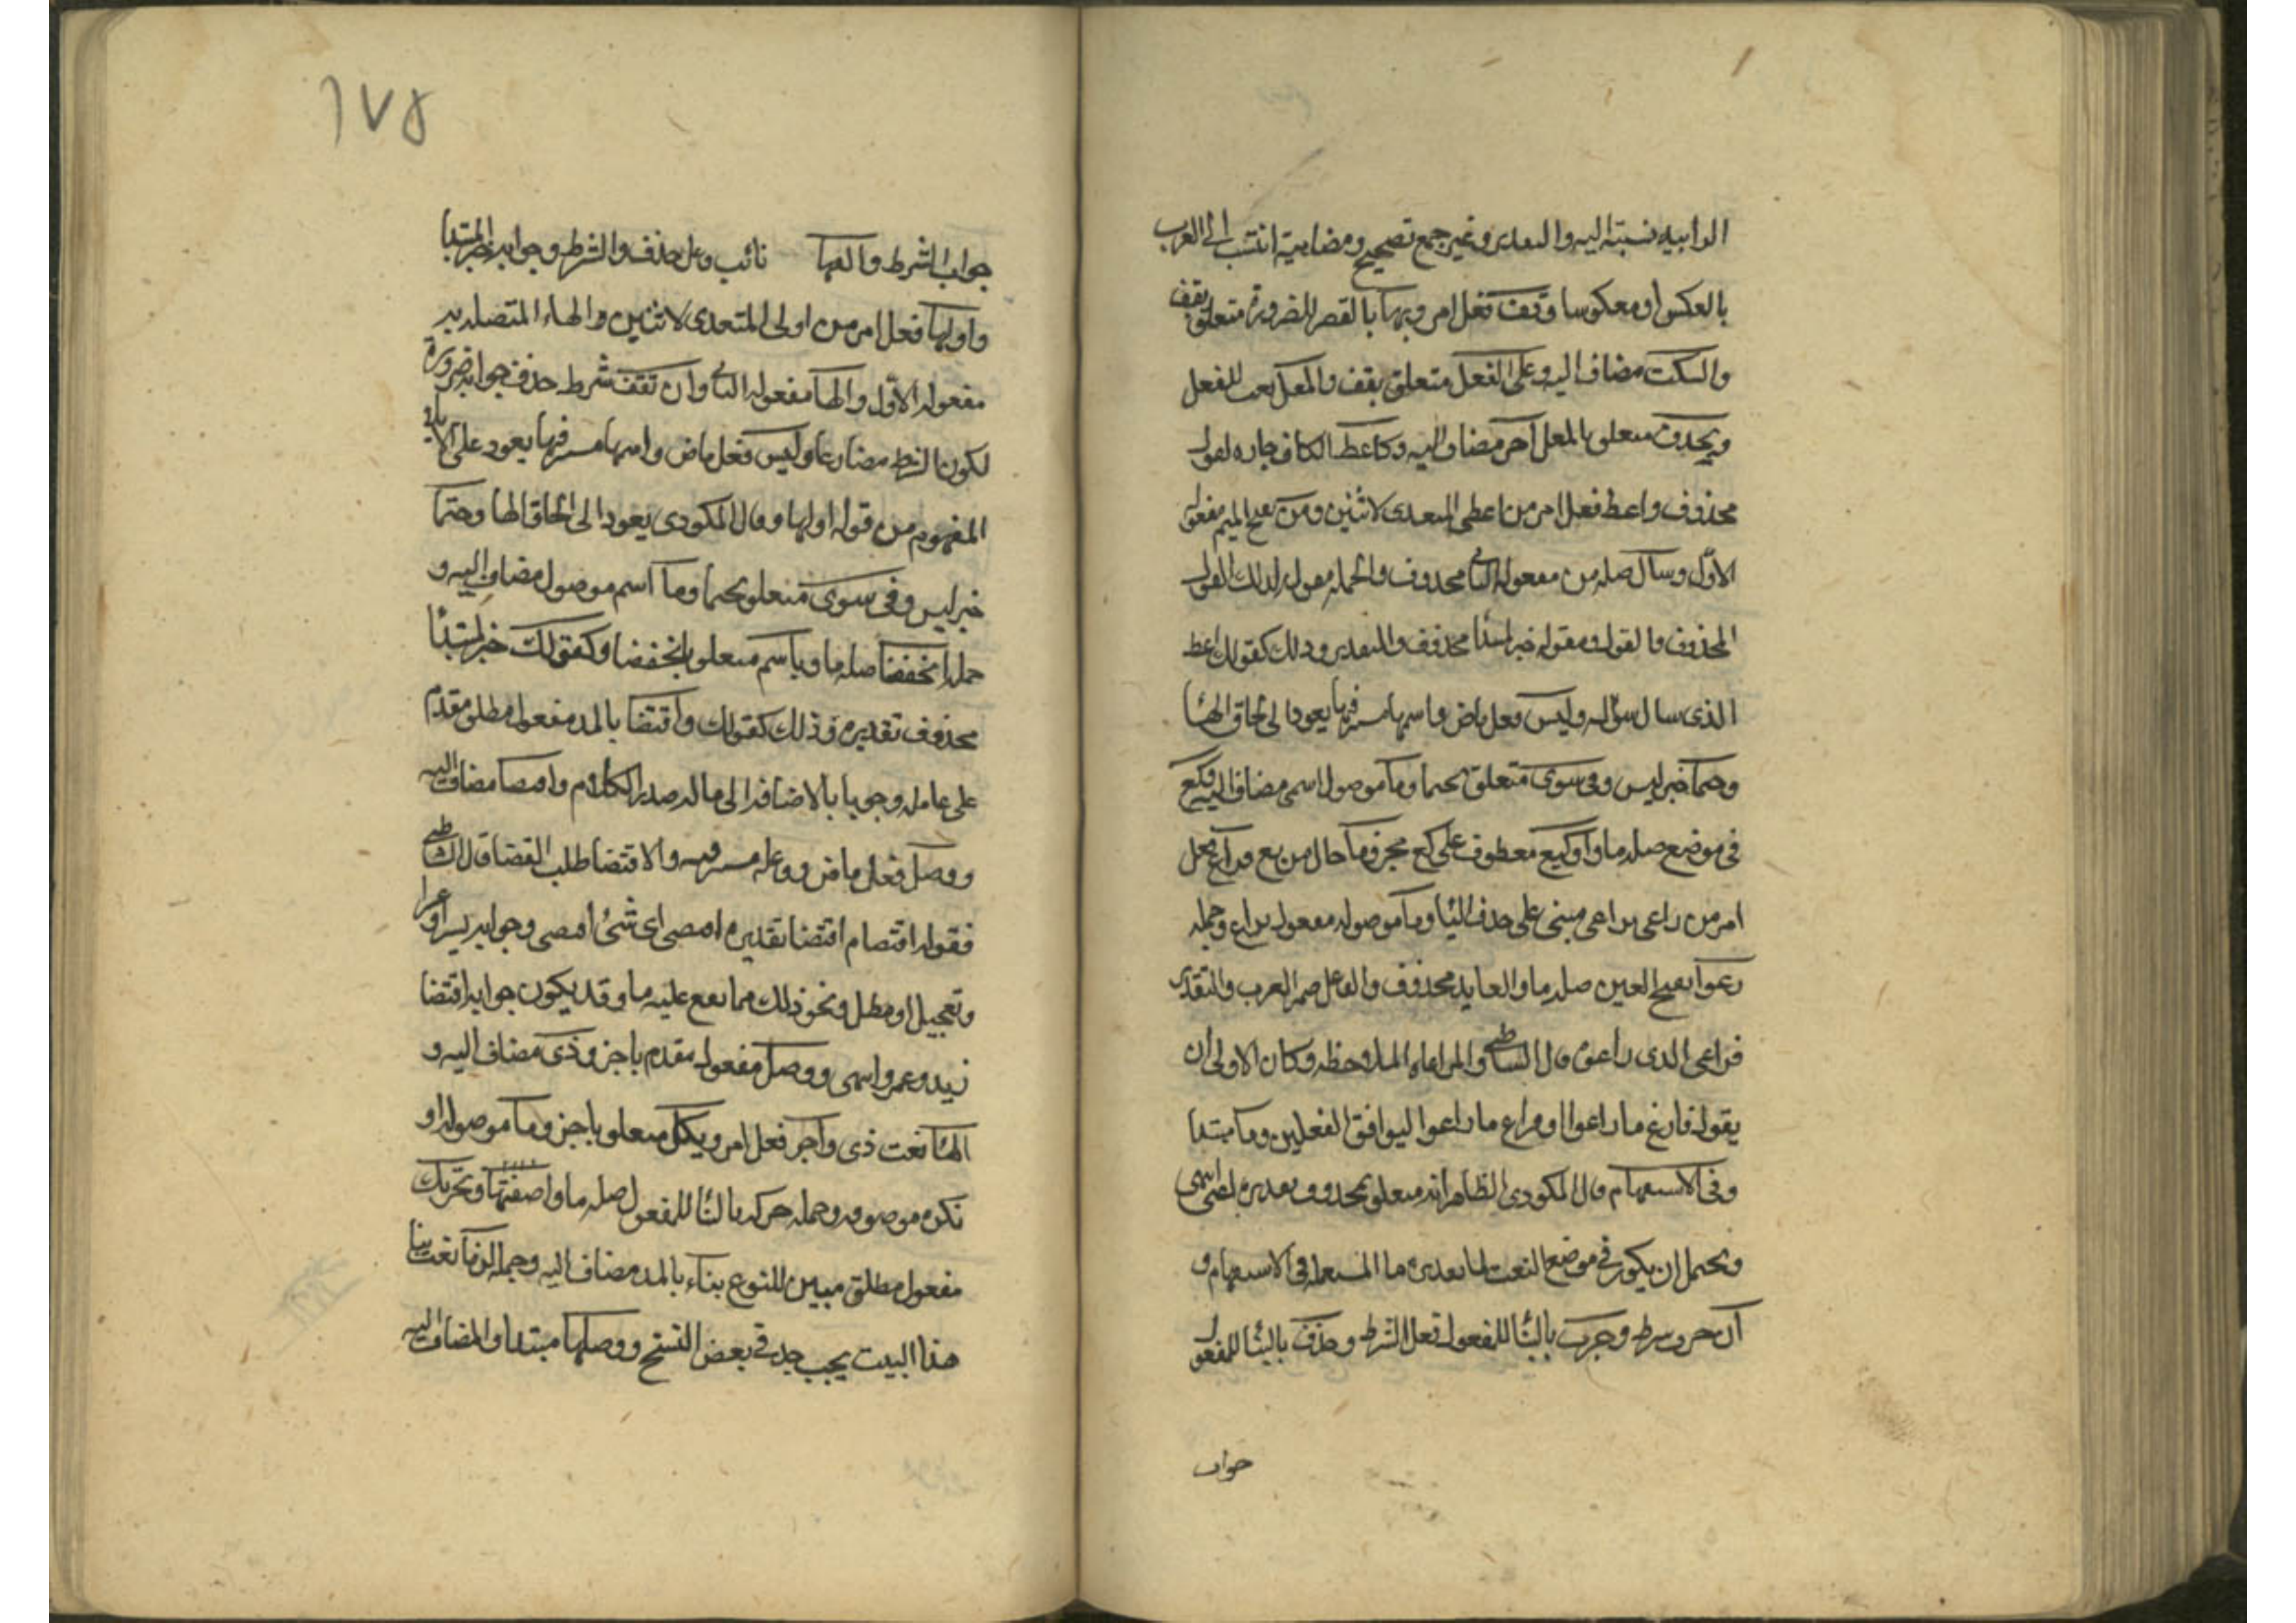 نسبته اليه والتقدير وغير جمع تصحيح ومضاهيه انتسب الى العرب
بالعكس او معكوسا وقف فعل امر وبها بالقصر للضرورة متعلق بقف
والسكت مضاف اليه وعلى الفعل متعلق بقف والمعل نعت للفعل
وبحذف متعلق بالمعل آخر مضاف اليه وكاعط الكاف جاره لقول
محذوف واعط فعل امر من اعطى المتعدى لاثنين ومن بفتح الميم مفعوله
الاول وسال صله من مفعوله الثانى محذوف والجمله مقوله لذلك القول
المحذوف والقول ومقوله خبر لمبتدا محذوف والتقدير وذلك كقولك اعط
الذى سال سؤاله وليس فعل ماض واسمها مستتر فيها يعود الى لحاق الهاء
وحتما خبر ليس وفى سوى متعلق بحتما وما موصول اسمى مضاف اليه وكع
فى موضع صله ما وأو كيع معطوف على كع مجزوما حال من يع فراع فعل
امر من راعى يراعى مبنى على حذف اليا وما موصوله مفعوله براع وجمله
رعوا بفتح العين صله ما والعايد محذوف والفاعل ضمير العرب والتقدير
فراعى الذى راعوه قال الشاطبى والمراعاه الملاحظه وكان الاولى ان
يقول فارع ما راعوا او فراع ما راعوا ليوافق الفعلين وما مبتدا
وفى الاستفهام قال المكودى الظاهر انه متعلق بمحذوف تقديره اعنى
ويحتمل ان يكون فى موضع النعت لما تقديره ما المستعمله فى الاستفهام و
ان حرف شرط وجرت بالبنا للمفعول فعل الشرط وحذف بالبنا للمفعول
جواب
١٧٥
جواب الشرط والفها نائب وعل حذف والشرط وجوابه خبر المبتدا
واولها فعل امر من اولى المتعدى لاثنين والهاء المتصله به
مفعوله الاول والها مفعوله الثانى وان تقف شرط حذف جوابه ضرورة
لكون الشرط مضارعا وليس فعل ماض واسمها مستتر فيها يعود على الايلاء
المفهوم من قوله اولها وقال المكودى يعود الى الحاق الها وحتما
خبر ليس وفى سوى متعلق بحتما وما اسم موصول مضاف اليه و
جمله انخفضا صله ما وباسم متعلق بانخفضا وكقولك خبر لمبتدأ
محذوف تقديره وذلك كقولك واقتضا بالمد مفعول مطلق مقدم
على عامله وجوبا بالاضافه الى ما له صدر الكلام وم اقتضا مضاف اليه
فعل ماض وفاعله مستتر فيه والاقتضا طلب القضا قال الشاطبى
فقوله اقتضام اقتضا تقديره اقتضى اى شئ اقتضى وجوابه يسرا او عسرا
وتعجيل او مطل ونحو ذلك مما تقع عليه ما وقد يكون جوابه اقتضا
زيد وعمرو اسمى ووصل مفعول مقدم باجز وذى مضاف اليه و
الها نعت ذى وأجز فعل امر وبكل متعلق باجز وما موصوله او
نكره موصوفه وجمله حرك بالبنا للمفعول صله ما او صفتها وتحريك
مفعول مطلق مبين للنوع بناء بالمد مضاف اليه وجمله لزما نعت بنا
هذا البيت فى بعض النسخ ووصلها مبتدا والمضاف اليه